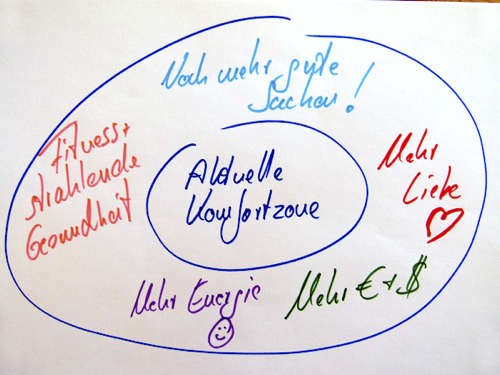 Noch mehr gute
Sachen!
Fitness +
strahlende
Gesundheit
Aktuelle
Komfortzone
Mehr
Liebe
Mehr Energie
Mehr € + $